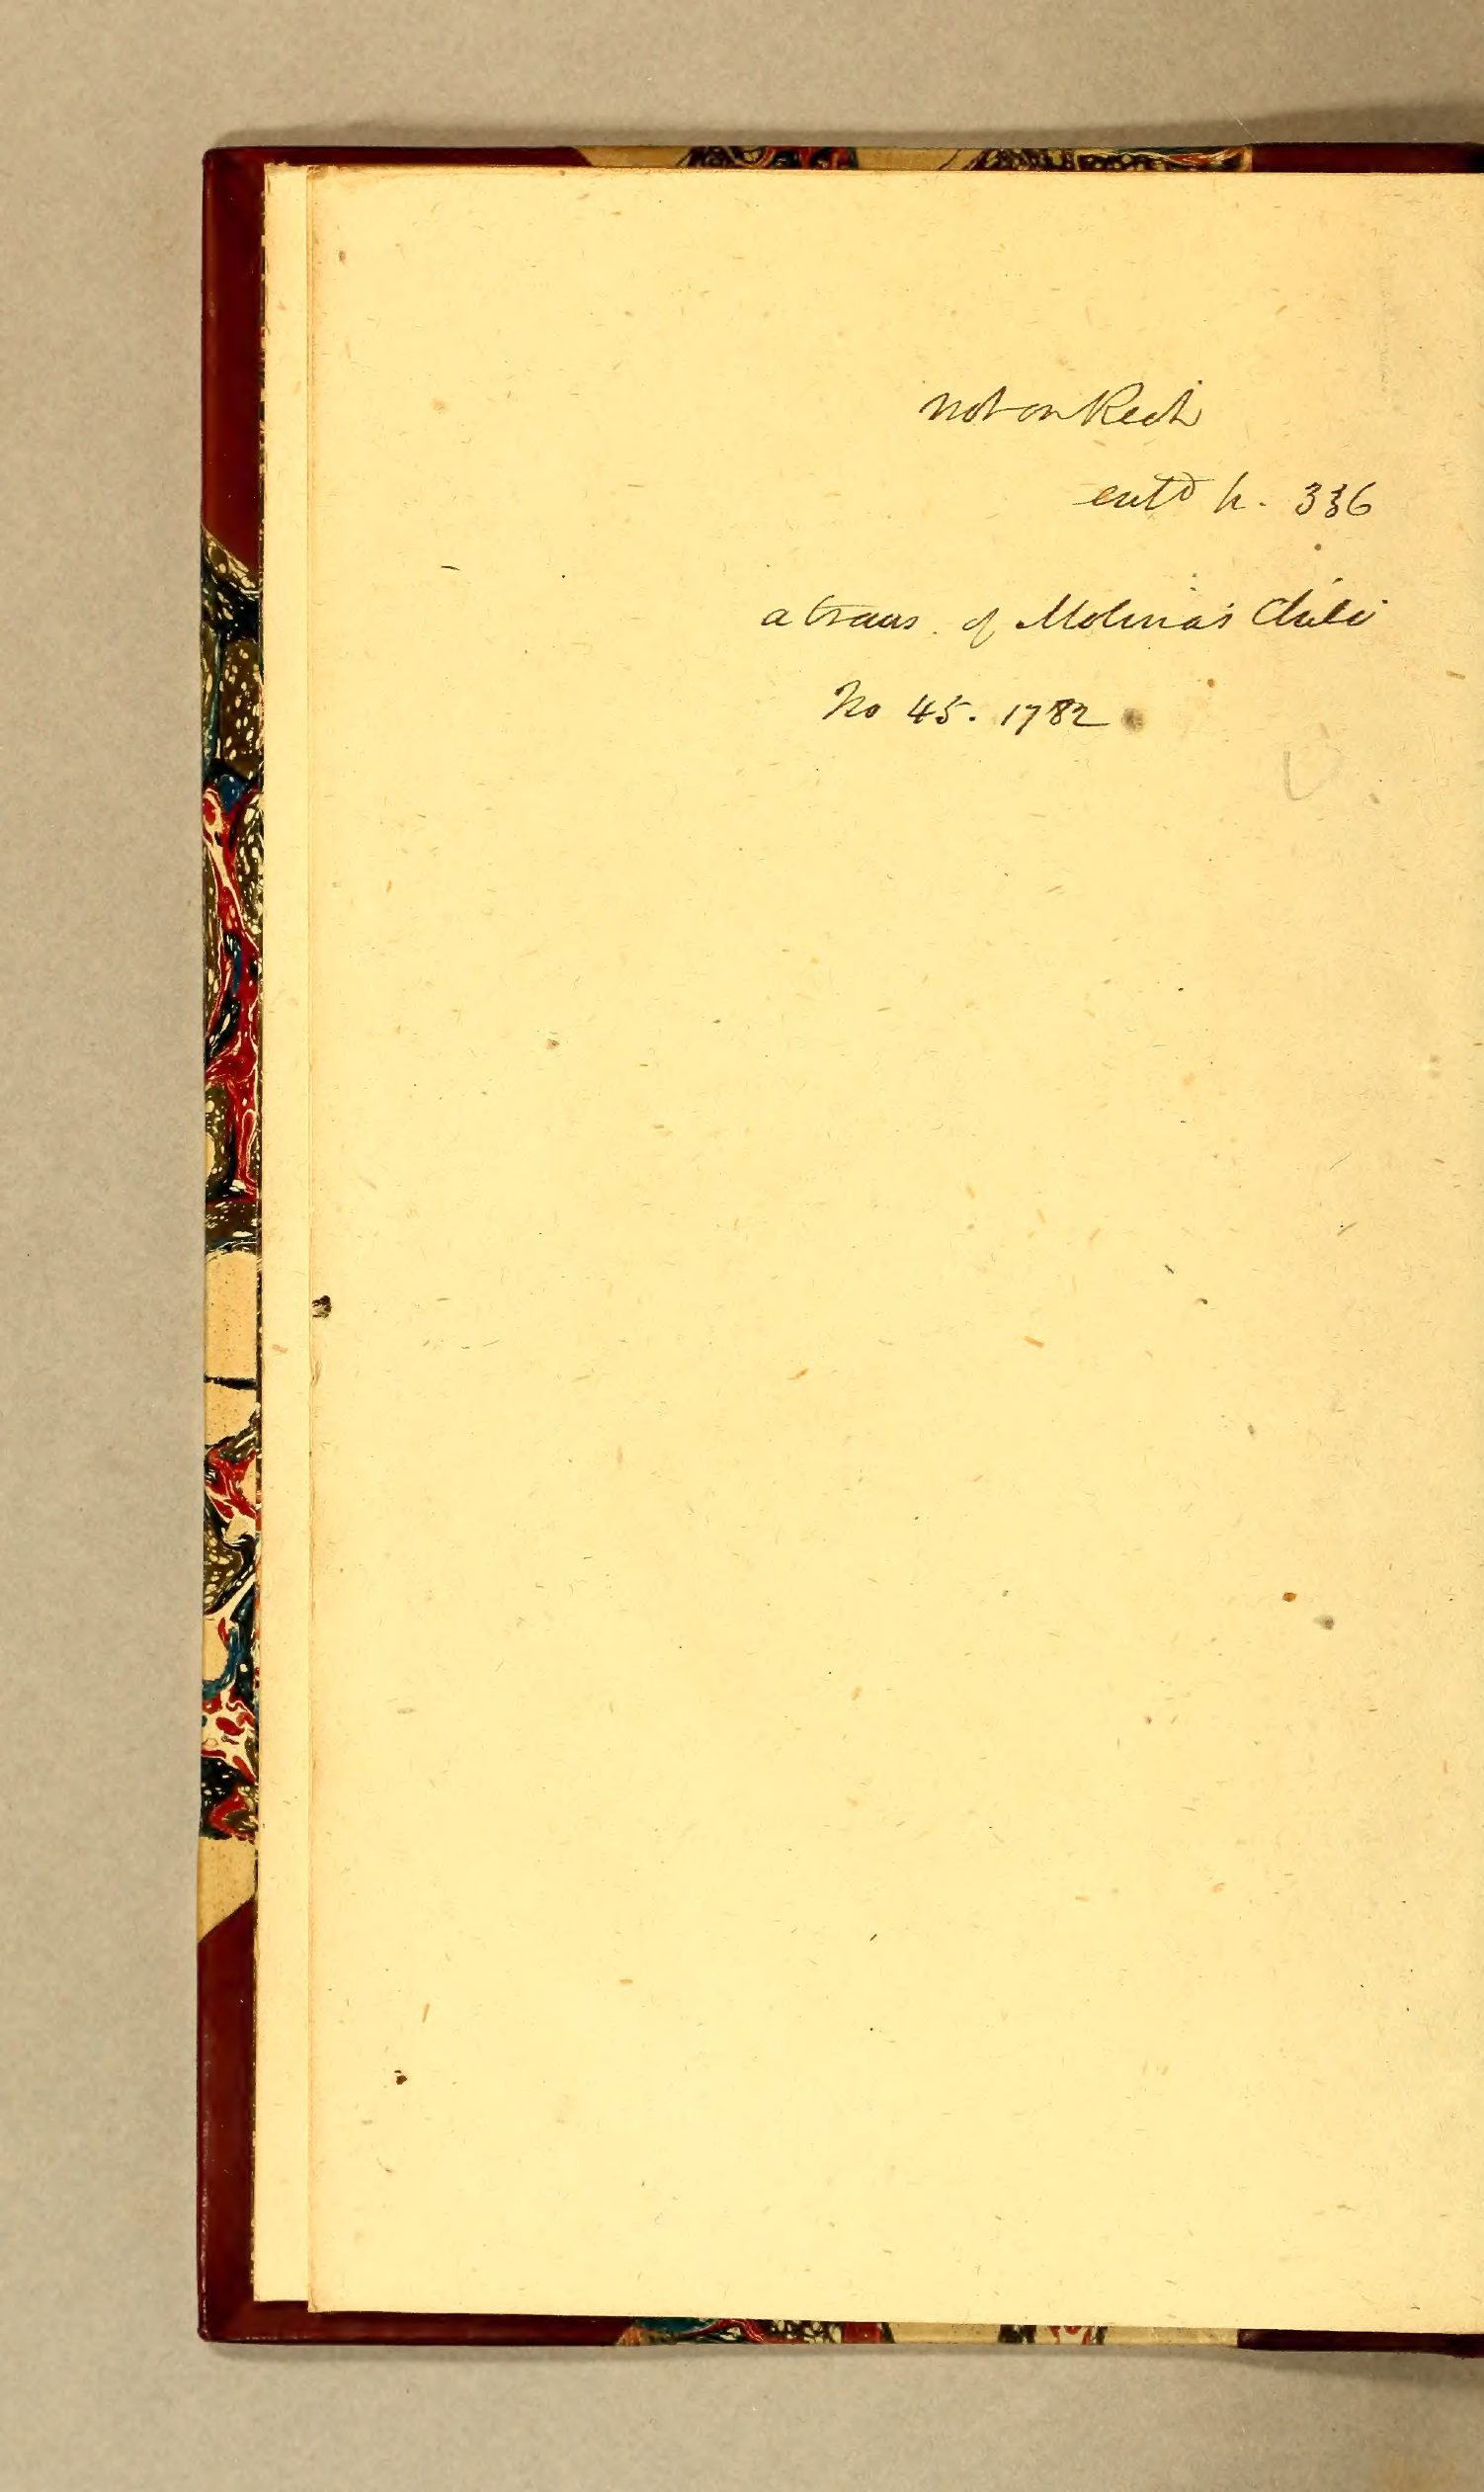 not in Rich
entd p. 336
a trans. of Molina's Chili
No 45. 1782